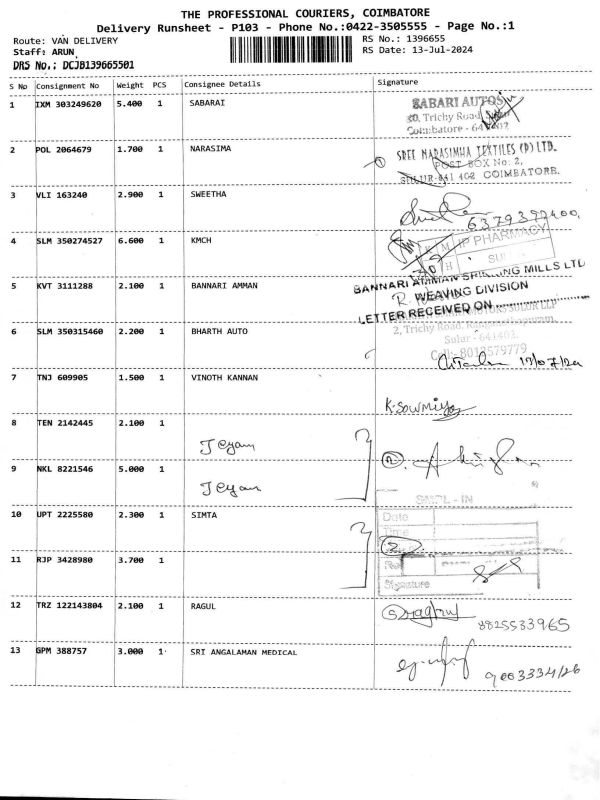 THE PROFESSIONAL COURIERS, COIMBATORE
Delivery Runsheet - P103 - Phone No.:0422-3505555 - Page No.:1
Route: VAN DELIVERY
RS No.: 1396655
Staff: ARUN
RS Date: 13-Jul-2024
DRS No.: DCJB139665501
S No Consignment No Weight PCS Consignee Details Signature
1 IXM 303249620 5.400 1 SABARAI
SABARI AUTOS
80, Trichy Road,
Coimbatore - 641402
2 POL 2064679 1.700 1 NARASIMA
1 SREE NARASIMHA TEXTILES (P) LTD.
POST BOX No: 2,
SULUR-641 402 COIMBATORE.
3 VLI 163240 2.900 1 SWEETHA
4 SLM 350274527 6.600 1 KMCH
KMCH IP PHARMACY
5 KVT 3111288 2.100 1 BANNARI AMMAN
BANNARI AMMAN SPINNING MILLS LTD
WEAVING DIVISION
LETTER RECEIVED ON
6 SLM 350315460 2.200 1 BHARTH AUTO
2, Trichy Road,
Sulur - 641402.
Cell: 8012579779
7 TNJ 609905 1.500 1 VINOTH KANNAN
K. Sowmiya
8 TEN 2142445 2.100 1
Jeyam
9 NKL 8221546 5.000 1
2
Jeyam
10 UPT 2225580 2.300 1 SIMTA
- IN
Date
Time
2
11 RJP 3428980 3.700 1
Signature
12 TRZ 122143804 2.100 1 RAGUL
8825533965
13 GPM 388757 3.000 1 SRI ANGALAMAN MEDICAL